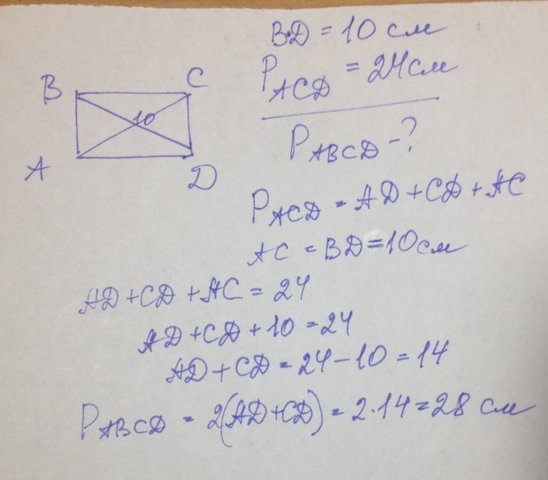 BD = 10 см
P_ACD = 24 см
B C
10
A D
P_ABCD - ?
P_ACD = AD + CD + AC
AC = BD = 10 см
AD + CD + AC = 24
AD + CD + 10 = 24
AD + CD = 24 - 10 = 14
P_ABCD = 2(AD+CD) = 2·14 = 28 см